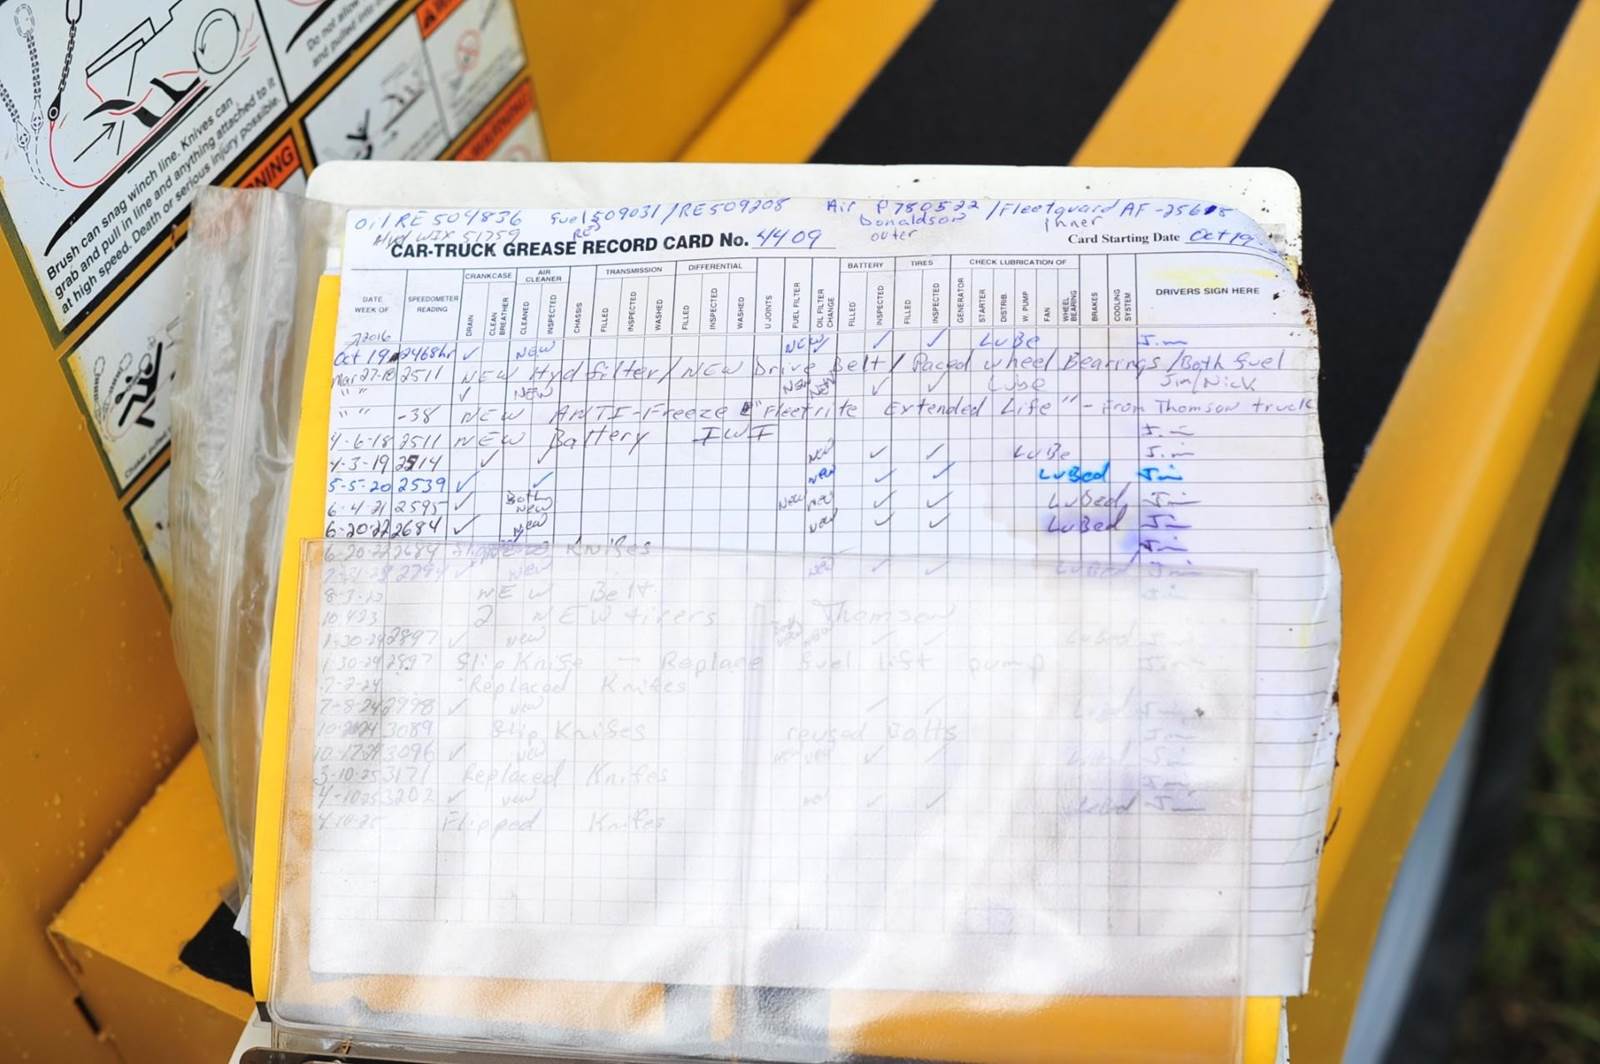 Do not allow
and pulled into
Brush can snag winch line. Knives can
grab and pull in line and anything attached to it
at high speed. Death or serious injury possible.
oil RE 504836 fuel 509031/RE509208 Air P780522/Fleetguard AF-256
Hyd WIX 51759 Donaldson inner
outer
CAR-TRUCK GREASE RECORD CARD No. 4409 Card Starting Date Oct 19
DATE WEEK OF SPEEDOMETER READING CRANKCASE AIR CLEANER TRANSMISSION DIFFERENTIAL BATTERY TIRES CHECK LUBRICATION OF DRIVERS SIGN HERE
DRAIN CLEAN BREATHER CLEANED INSPECTED CHASSIS FILLED INSPECTED WASHED FILLED INSPECTED WASHED U JOINTS FUEL FILTER OIL FILTER CHANGE FILLED INSPECTED FILLED INSPECTED GENERATOR STARTER DISTRIB. W. PUMP FAN WHEEL BEARING BRAKES COOLING SYSTEM
2016
Oct 19 2468hr ✓ NEW NEW ✓ ✓ ✓ LuBe Jim
Mar 27-18 2511 NEW Hyd filter/NEW Drive Belt/Paced wheel Bearings/Both fuel
" " ✓ NEW NEW NEW ✓ ✓ Lube Jim/Nick
" " -38 NEW ANTI-Freeze "Fleetrite Extended Life" - From Thomson truck
4-6-18 2511 NEW Battery IWI Jim
4-3-19 2514 ✓ ✓ NEW ✓ ✓ LuBe Jim
5-5-20 2539 ✓ ✓ NEW ✓ ✓ LuBed Jim
6-4-21 2595 ✓ Both New New New ✓ ✓ LuBed Jim
6-20-22 2684 ✓ New New ✓ ✓ LuBed Jim
6-20-22 2684 Knifes Jim
2794 ✓ New New ✓ ✓ LuBed Jim
NEW Belt
10-4-23 2 NEW tirers Thomson
1-30-24 2897 ✓ New ✓ ✓ LuBed Jim
1-30-24 2897 Slip Knife - Replace fuel Lift pump Jim
7-2-24 Replaced Knifes
7-8-24 2998 ✓ New ✓ ✓ Jim
3089 Slip Knifes reused bolts Jim
10-17-24 3096 ✓ New ✓ ✓ Jim
3-10-25 3171 Replaced Knifes Jim
4-10-25 3202 ✓ New ✓ ✓ LuBed Jim
4-10-25 Flipped Knifes